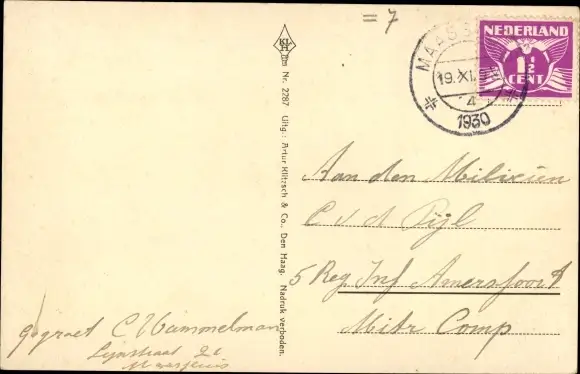 = 7
NEDERLAND
1½
CENT
19.XI
4
1930
Nr. 2287 Uitg.: Artur Klitzsch & Co., Den Haag. Nadruk verboden.
Aan den Milicien
C v d Pijl
5 Reg Inf Amersfoort
Mitr Comp
gegroet C Hammelman